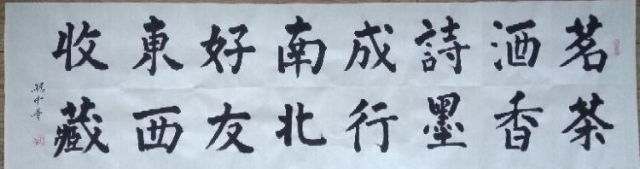 茗茶
酒香
詩墨
成行
南北
好友
東西
收藏